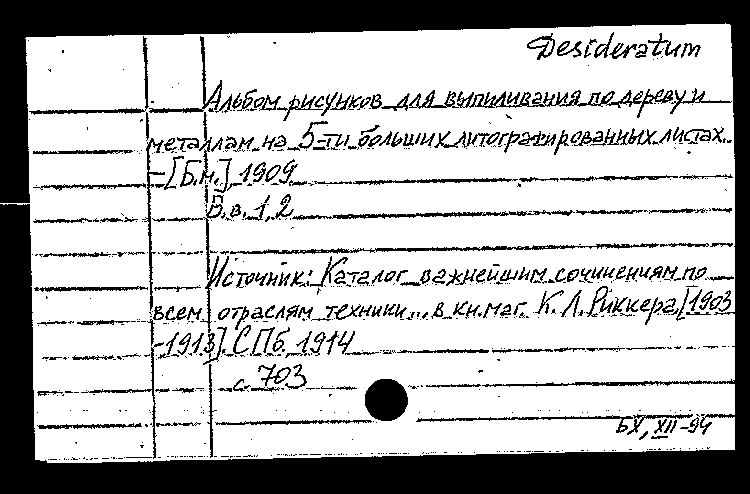 Desideratum
Альбом рисунков для выпиливания по дереву и
металлам на 5-ти больших литографированных листах.
-[Б.м.] 1909
В.в. 1,2
Источник: Каталог важнейшим сочинениям по
всем отраслям техники... в кн. маг. К. Л. Риккера [1903
-1913]. СПб. 1914
с. 703
БХ, XII-94